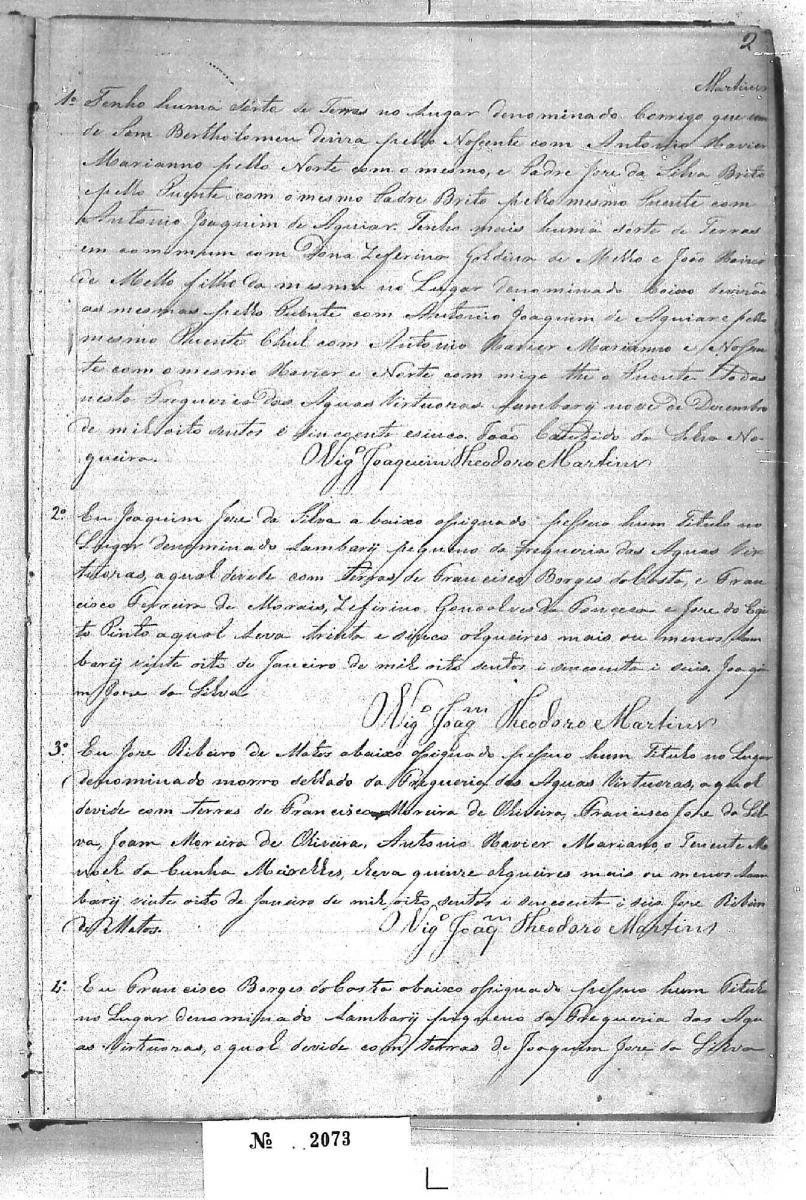 2
Martins
1º Tenho huma sórte de Terras no Lugar denominado Corrigo que vem
de Sam Bertholomeu devira pello Noscente com Antonio Xavier
Marianno pello Norte com o mesmo, e Padre Jose da Silva Brito
e pello Puente com o mesmo Padre Brito pello mesmo Puente com
Antonio Joaquim de Aguiar. Tenho mais huma sórte de Terras
em commum com Dona Zeferina Goldina de Mello e João Xavier
de Mello filho da mesma no Lugar denominado baixo devirão
as mesmas pello Puente com Antonio Joaquim de Aguiar e pello
mesmo Puente Chul com Antonio Xavier Marianno e Nossen-
te com o mesmo Xavier e Norte com migo the o Puente todas
nesta Fregueria das Aguas Virtuoras Lambarij nove de Dezembro
de mil oito sentos e sincoente e sinco. João Candido da Silva No-
gueira. O Vigº Joaquim Theodoro Martins
2º Eu Joaquim Jose da Silva abaixo assignado pessuo hum Titulo no
Lugar denominado Lambarij piqueno da Fregueria das Aguas Vir-
tuoras, a qual devide com terras de Francisco Borges da Costa, e Fran-
cisco Ferreira de Morais, Zeferino Goncalves da Fonceca e Jose do Egi-
to Pinto a qual Leva trinta e sinco alqueires mais ou menos Lam-
barij vinte oito de Janeiro de mil oito sentos i sincoenta i seis. Joaqi-
m Jose da Silva
O Vigº Joaqm Theodoro Martins
3º Eu Jose Ribeiro de Matos abaixo assignado pessuo hum Titulo no Lugar
denominado morro dellado da Fregueria das Aguas Virtueras, a qual
devide com terras de Francisco Moreira de Oliveira, Francisco Jose da Sil-
va, Joam Moreira de Oliveira, Antonio Xavier Mariano, o Tenente Ma-
noel da Cunha Meirelles, Leva quinze alqueires mais ou menos Lam-
barij vinte oito de Janeiro de mil oito sentos i sincoenta i seis Jose Ribeiro
de Matos. O Vigº Joaqm Theodoro Martins
4º Eu Francisco Borges da Costa abaixo assignado pessuo hum Titulo
no Lugar denominado Lambarij piqueno da Fregueria das Agu-
as Virtuoras, o qual devide com terras de Joaquim Jose da Silva
Nº 2073